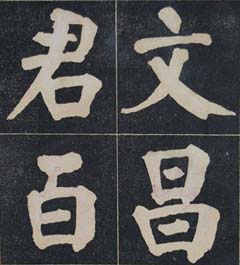 文昌
君百